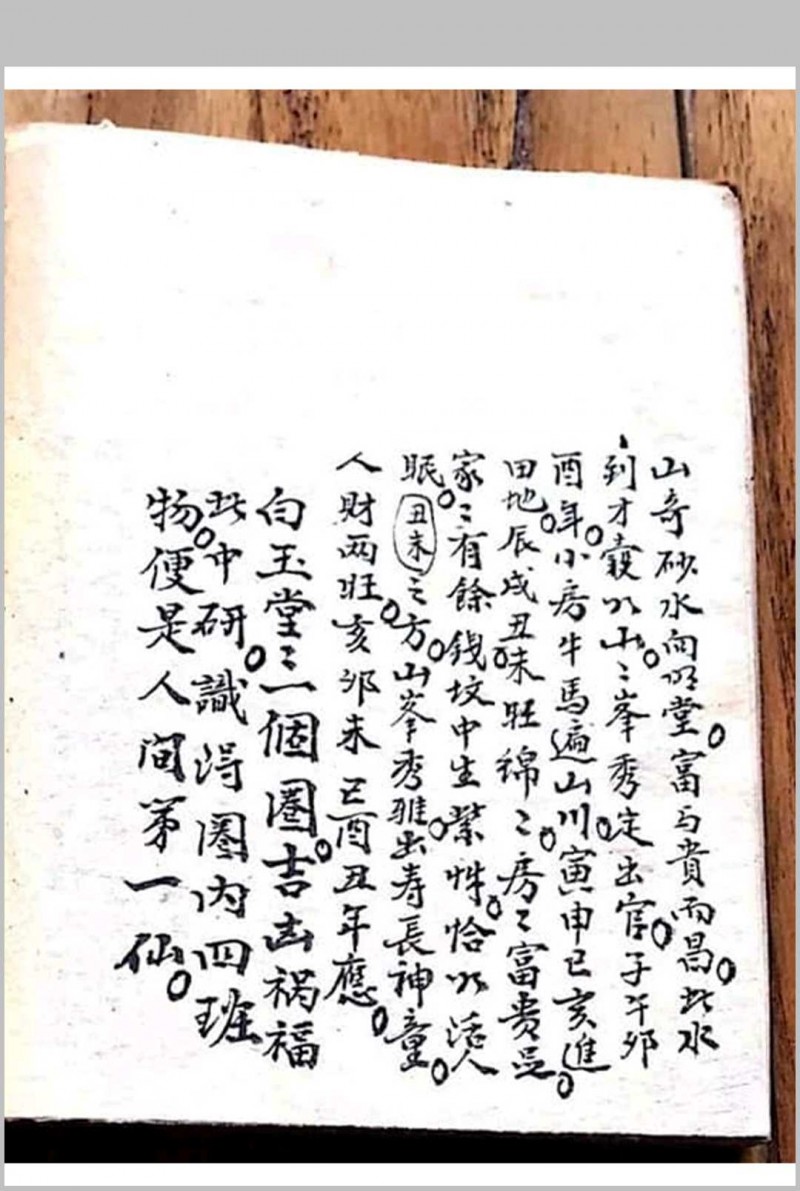 山奇砂水向明堂。富与貴而昌。此水
到才囊以山。山峯秀定出官。子午卯
酉年。小房牛馬遍山川。寅申巳亥進
田地。辰戌丑未旺綿綿。房房富貴足。
家家有餘錢。坟中生紫性。恰以活人
眠。丑未之方。山峯秀雅。出寿長神童。
人財两旺。亥卯未巳酉丑年應。
白玉堂堂一個圈。吉凶祸福
此中研。識淂圏内四
物。便是人间第一仙。